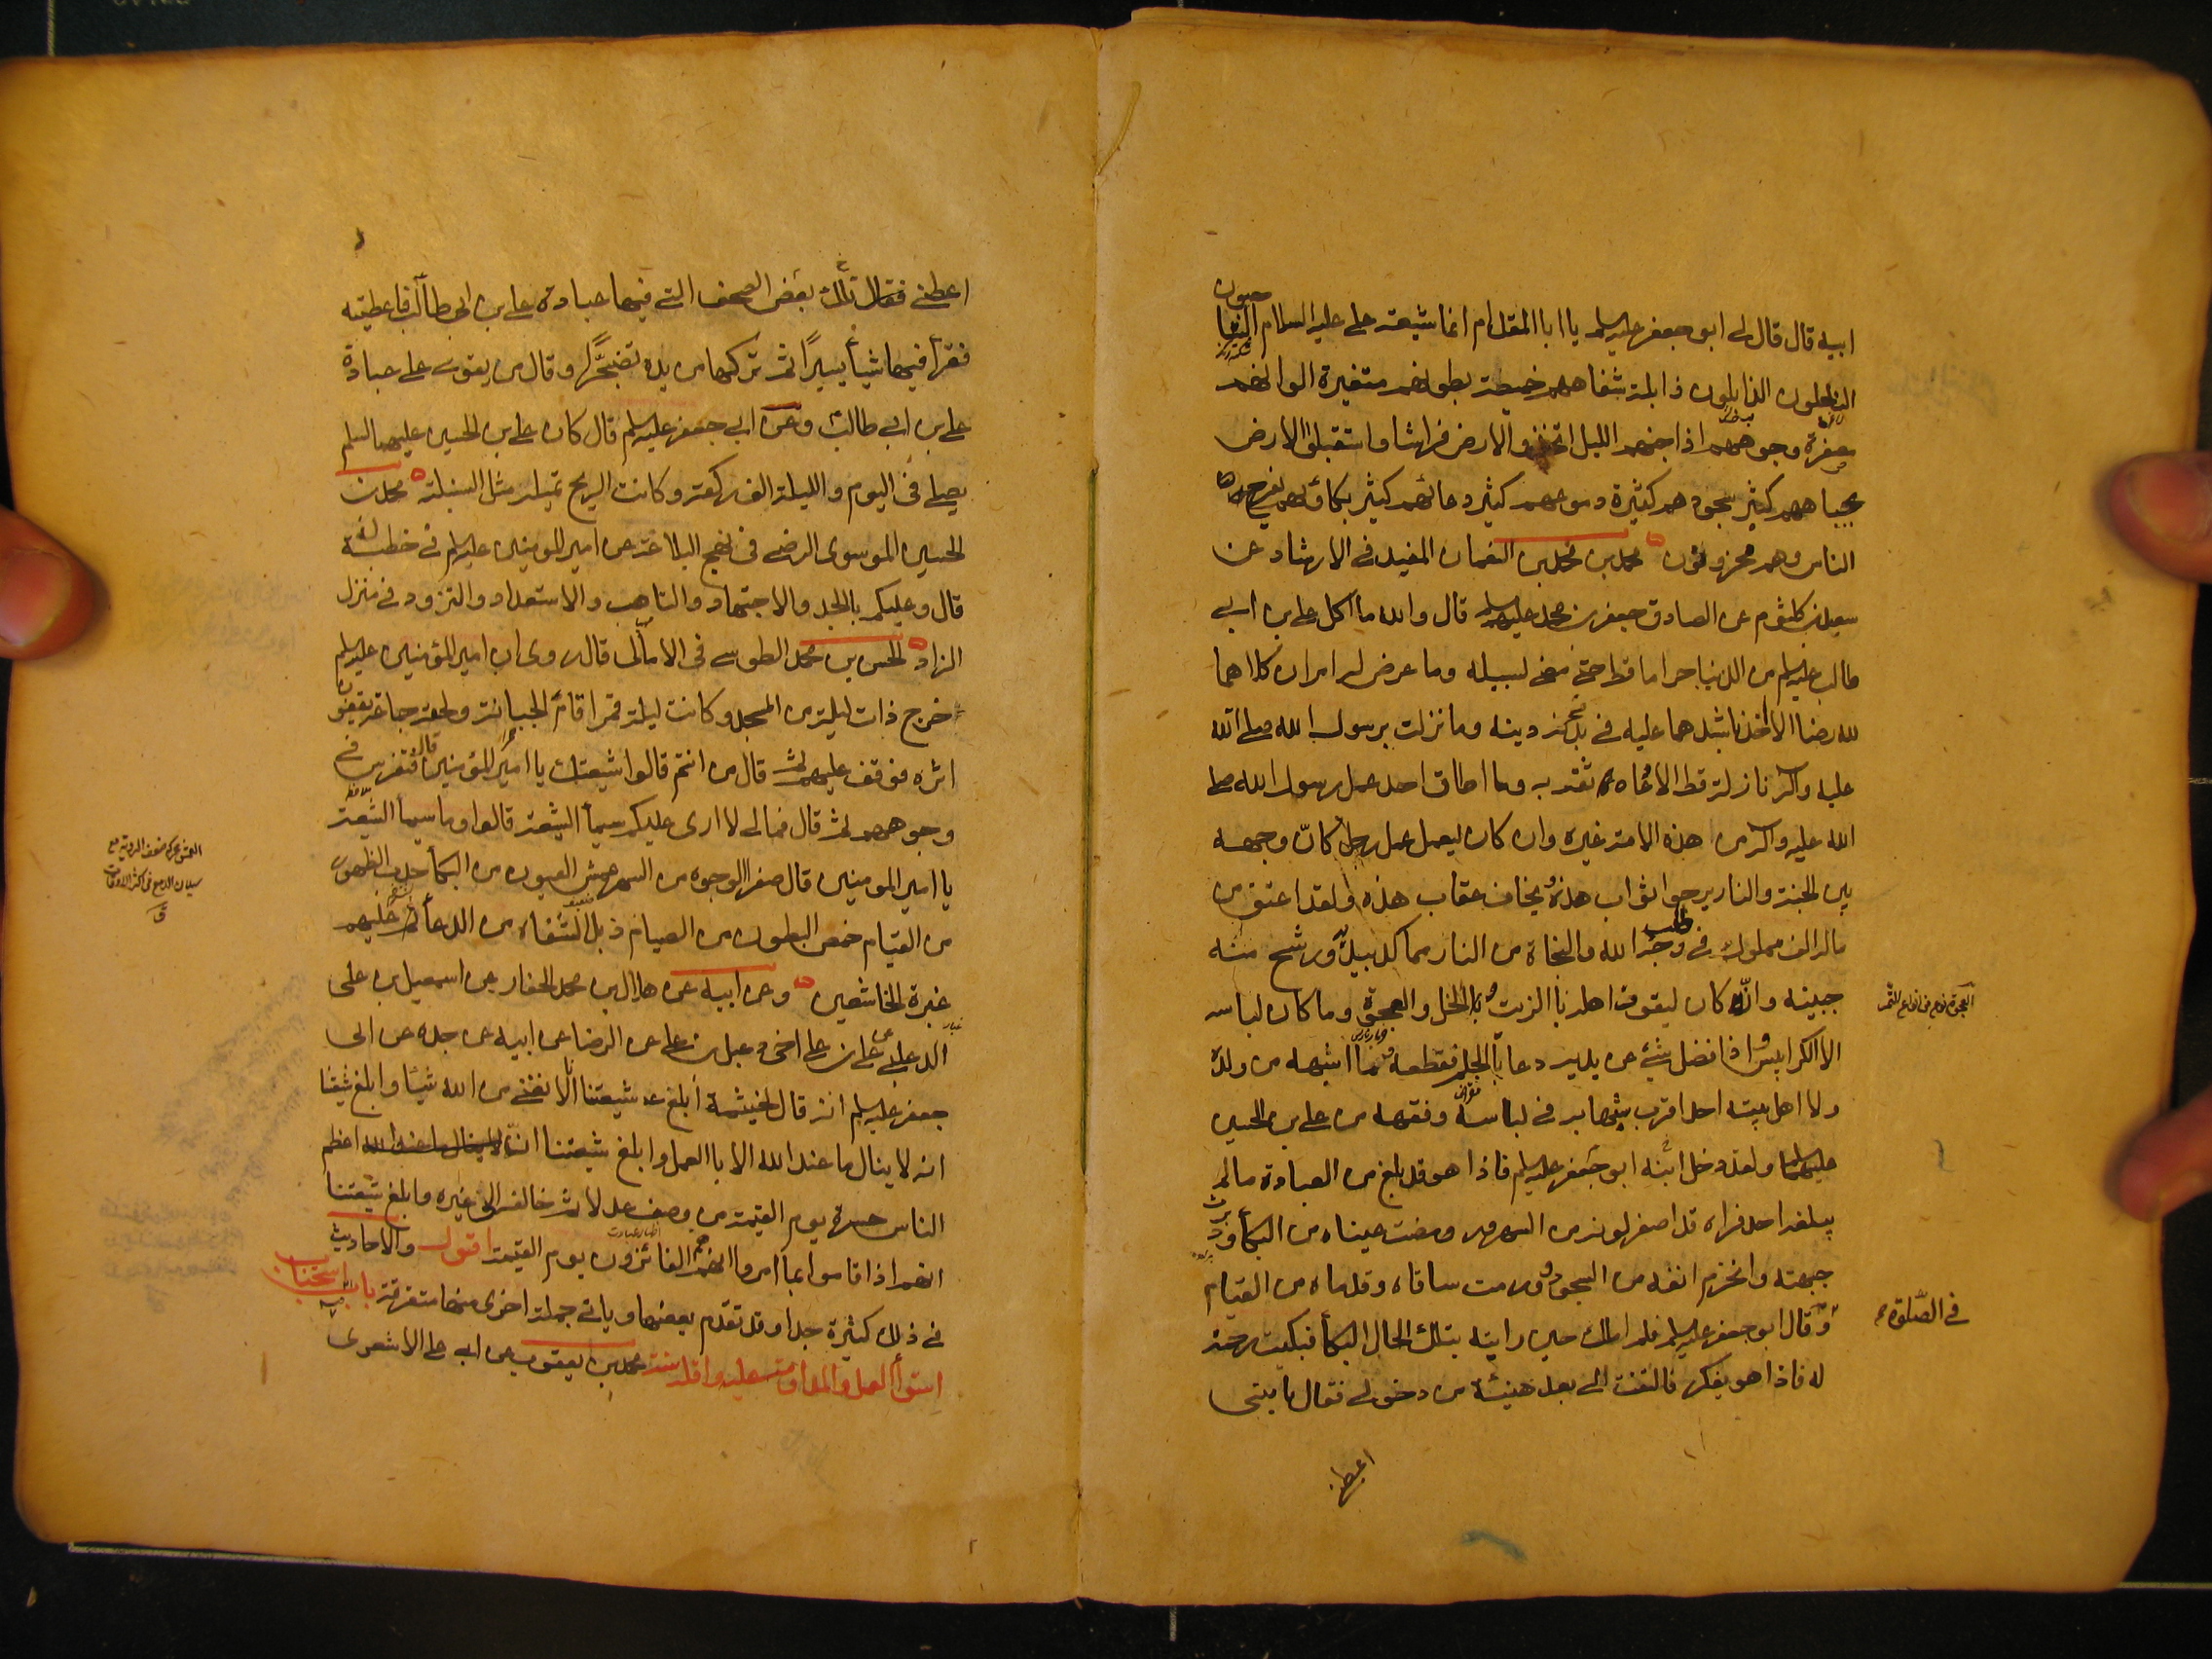 ابيه قال قال لي ابو جعفر عليه السلم يا ابا المقدام انما شيعة علي عليه السلام الشاحبون
الناحلون الذابلون ذابلة شفاههم خميصة بطونهم متغيرة الوانهم
مصفرة وجوههم اذا جنهم الليل اتخذوا الارض فراشا واستقبلوا الارض
بجباههم كثير سجودهم كثيرة دموعهم كثير دعائهم كثير بكاؤهم يفرح
الناس وهم محزونون محمد بن محمد بن النعمان المفيد في الارشاد عن
سعيد بن كلثوم عن الصادق جعفر بن محمد عليه السلم قال والله ما اكل علي بن ابي
طالب عليه السلم من الدنيا حراما قط حتى مضى لسبيله وما عرض له امران كلاهما
لله رضا الا اخذ باشدهما عليه في دينه وما نزلت برسول الله صلى الله
عليه وآله نازلة قط الا دعاه ثقة به وما اطاق احد عمل رسول الله صلى
الله عليه وآله من هذه الامة غيره وان كان ليعمل عمل رجل كان وجهه
بين الجنة والنار يرجوا ثواب هذه ويخاف عقاب هذه ولقد اعتق من
ماله الف مملوك في طلب وجه الله والنجاة من النار مما كد بيديه ورشح منه
جبينه وانه كان ليقوت اهله بالزيت والخل والعجوة وما كان لباسه
الا الكرابيس اذا فضل شئ عن يديه دعا بالجلم فقطعه وما اشبهه من ولده
ولا اهل بيته احد اقرب شبها به في لباسه وفقهه من علي بن الحسين
عليهما السلم ولقد دخل ابنه ابو جعفر عليه السلم فاذا هو قد بلغ من العبادة ما لم
يبلغه احد فراه قد اصفر لونه من السهر ورمضت عيناه من البكاء ودبرت
جبهته وانخرم انفه من السجود وورمت ساقاه وقدماه من القيام
في الصلوة
وقال ابو جعفر عليه السلم فلم املك حين رايته بتلك الحال البكاء فبكيت رحمة
له فاذا هو يفكر فالتفت الي بعد هنيئة من دخولي فقال يا بني
اعطنى
العجوة نوع من انواع التمر
اعطني فقال تلك بعض الصحف التي فيها عبادة علي بن ابي طالب فاعطيته
فقرأ فيها شيأ يسيرا ثم تركها من يده تضجرا وقال من يقوى على عبادة
علي بن ابي طالب وعن ابي جعفر عليه السلم قال كان علي بن الحسين عليهما السلم
يصلي في اليوم والليلة الف ركعة وكانت الريح تميله مثل السنبلة محمد بن
الحسين الموسوى الرضي في نهج البلاغة عن امير المومنين عليه السلم في خطبة له
قال وعليكم بالجد والاجتهاد والتاهب والاستعداد والتزود في منزل
الزاد الحسن بن محمد الطوسي في الامالى قال روى ان امير المؤمنين عليه السلم
خرج ذات ليلة من المسجد وكانت ليلة قمراء فأم الجبانة ولحقه جماعة يقفون
اثره فوقف عليهم ثم قال من انتم قالوا شيعتك يا امير المؤمنين قال فتفرس في
وجوههم ثم قال فما لي لا ارى عليكم سيماء الشيعة قالوا وما سيماء الشيعة
يا امير المومنين قال صفر الوجوه من السهر عمش العيون من البكاء حدب الظهور
من القيام خمص البطون من الصيام ذبل الشفاه من الدعاء عليهم
غبرة الخاشعين وعن ابيه عن هلال بن محمد الحفار عن اسمعيل بن علي
الدعبلي عن علي بن علي اخى دعبل بن علي عن الرضا عن ابيه عن جده عن ابى
جعفر عليه السلم انه قال لخيثمة أبلغ شيعتنا انا لا نغني من الله شيئا وابلغ شيعتنا
انه لا ينال ما عند الله الا بالعمل وابلغ شيعتنا ان اعظم
الناس حسرة يوم القيمة من وصف عدلا ثم خالفه الى غيره وابلغ شيعتنا
انهم اذا قاموا بما امروا انهم هم الفائزون يوم القيمة اقول والاحاديث
في ذلك كثيرة جدا وقد تقدم بعضها وياتي جملة اخرى منها متفرقة باب استحباب
استواء العمل والمداومة عليه واقله سنة محمد بن يعقوب عن ابي علي الاشعرى
العمش محركة ضعف الروية مع
سيلان الدمع في اكثر الاوقات
ق